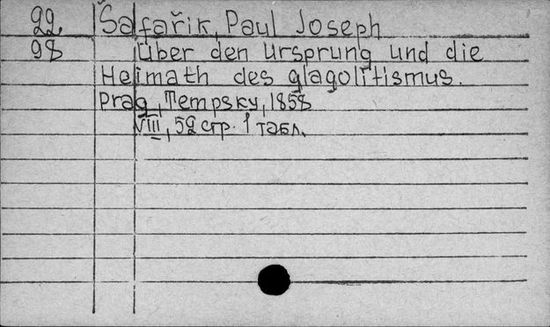 22 Šafařik, Paul Joseph
98 Über den Ursprung und die
Heimath des glagolitismus.
Prag, Tempsky, 1858
VIII, 52 стр. 1 табл.